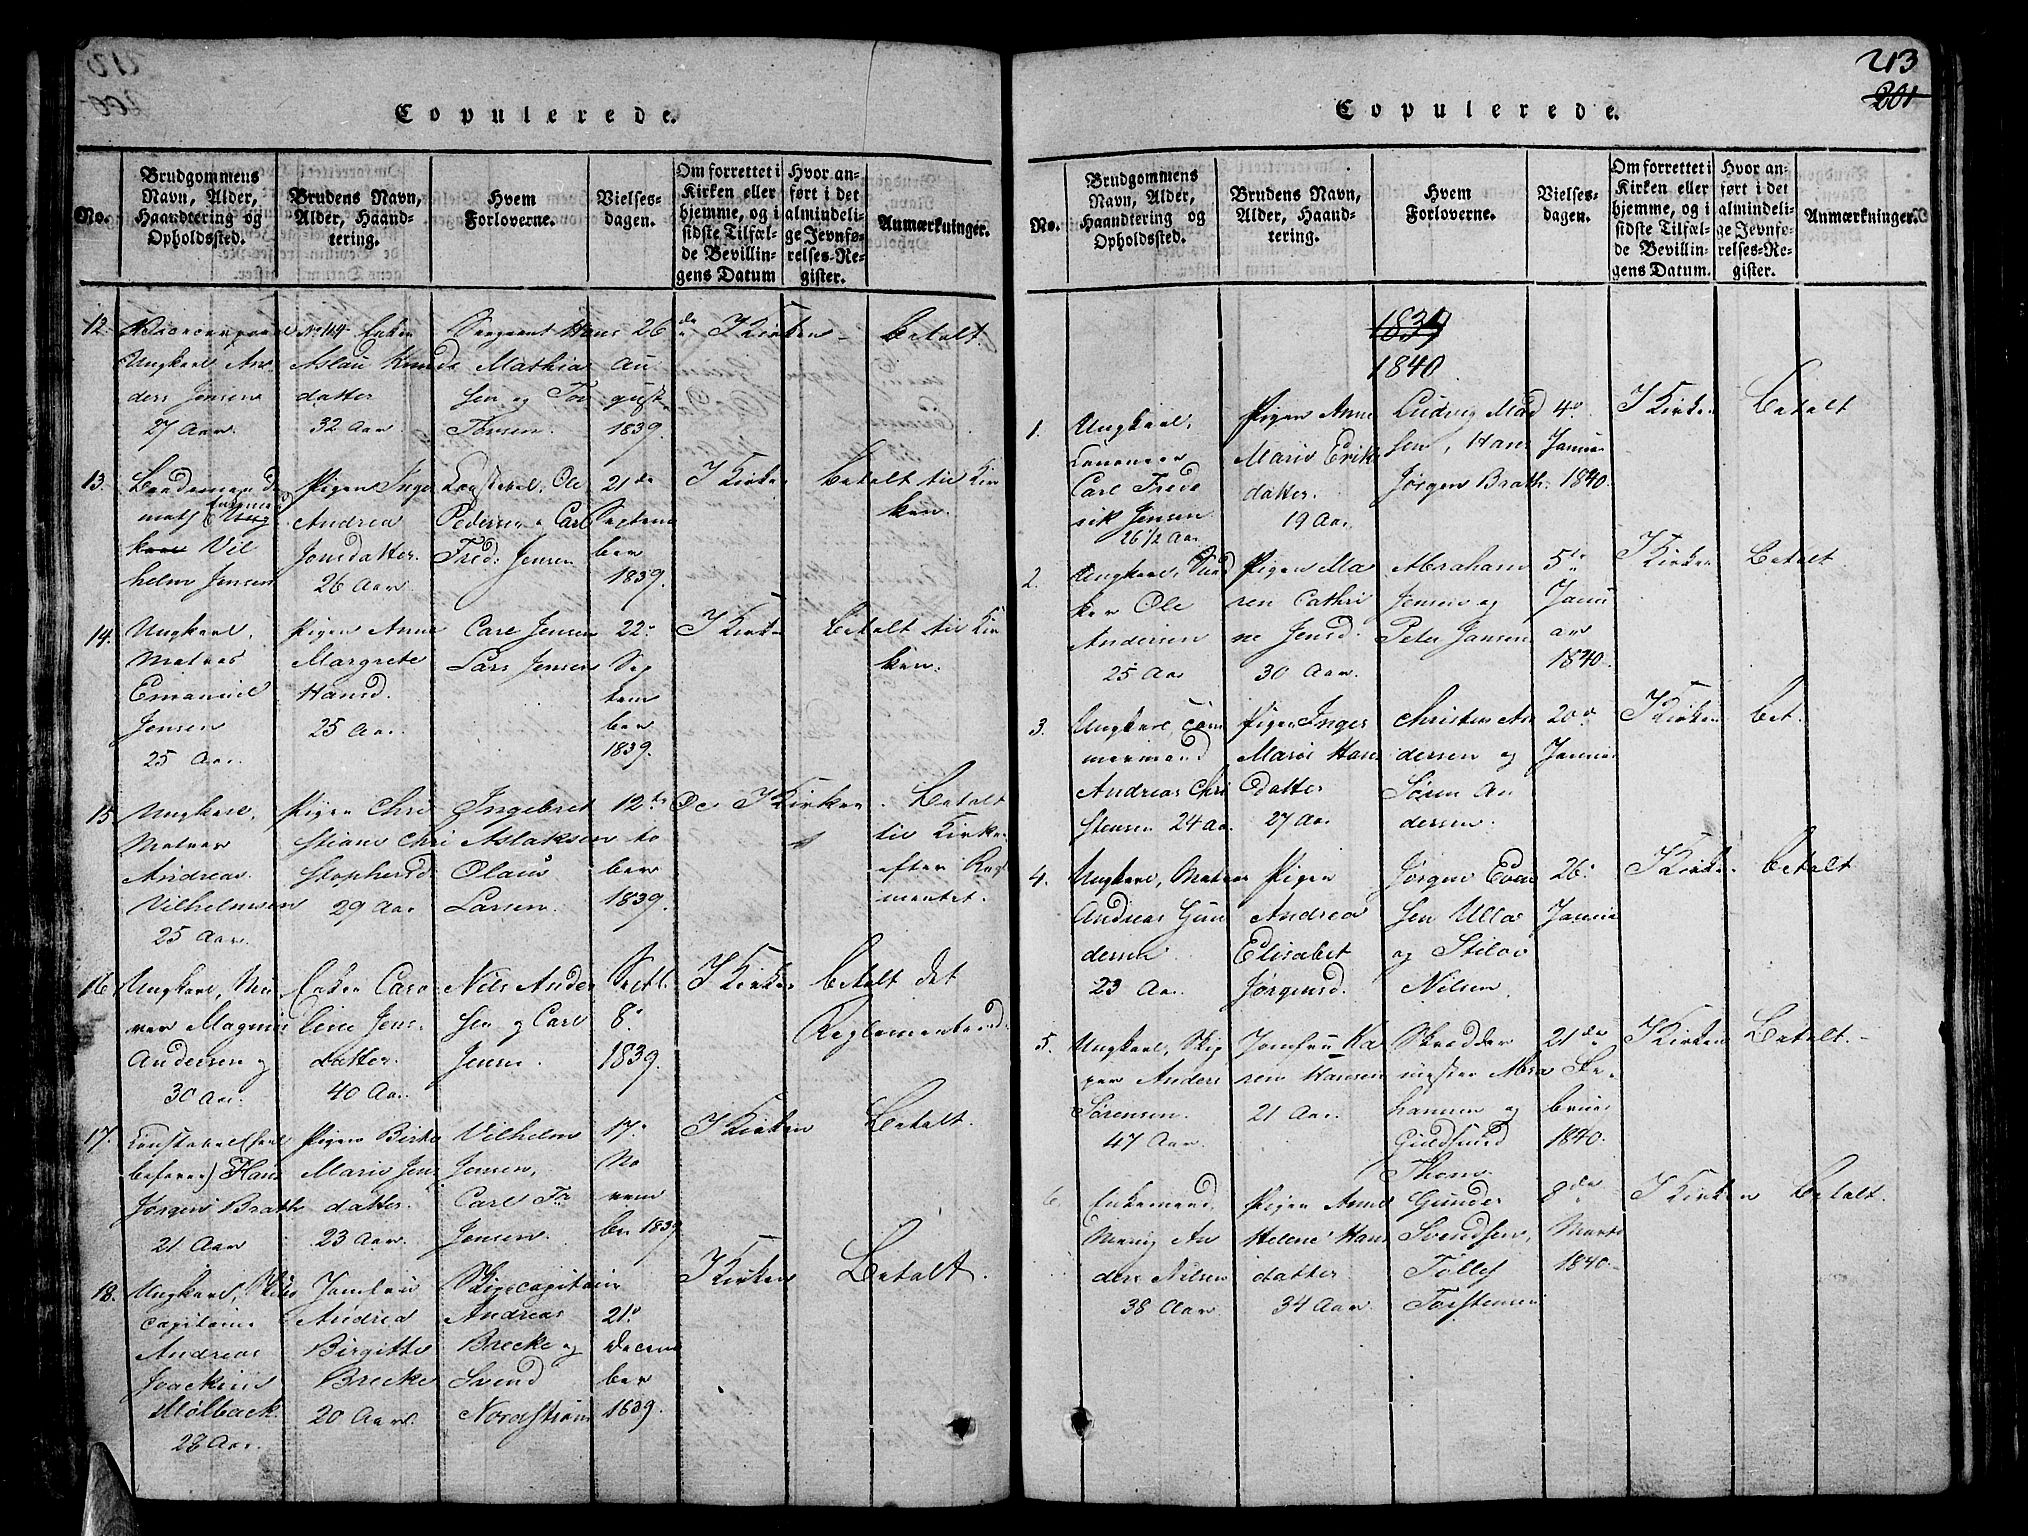 213
201
Copulerede.
No.
Brudgommens
Navn, Alder,
Haandtering og
Opholdssted.
Brudens Navn,
Alder, Haand-
tering.
Hvem
Forloverne.
Vielses-
dagen.
Om forrettet i
Kirken eller
hjemme, og i
sidste Tilfæl-
de Bevillin-
gens Datum
Hvor an-
ført i det
almindeli-
ge Jevnfø-
relses-Re-
gister.
Anmærkninger.
12.
Ungkarl An
ders Jensen
27 Aar.
Aslau Knuds
datter
32 Aar
Sergeant Hans
Mathia
sen og Tor
Torsen.
26 de
Au
gust
1839.
I Kirken
betalt.
13.
Vil
helm Jensen
Pigen Inge
Andrea
Jonsdatter.
26 Aar.
Ole
Pedersen og Carl
Fred. Jensen
21de
Septem
ber
1839.
I Kirken
Betalt til Kir
ken.
14.
Ungkarl,
Matros
Emanuel
Jensen
25 Aar.
Pigen Anne
Margrete
Hansd.
25 Aar.
Carl Jensen
Lars Jensen
22
Sep
tem
ber
1839.
I Kirken
betalt til Kir
ken.
15.
Ungkarl,
Matros
Andreas
Vilhelmsen
25 Aar.
Pigen Chri
stiane Chri
stophersd
29 Aar
Ingebret
Aslaksen
Olaus
Larsen.
12te Oc
to
ber
1839.
I Kirken
Betalt
til Kirken
efter Regl
mentet.
16.
Ungkarl, Mu
rer Magnus
Andersen
30 Aar.
Enken Caro
line Jens
datter.
40 Aar.
Nils Ander
sen og Carl
Jensen.
Septb.
8
1839.
I Kirken
betalt det
Reglementerede
17.
Hans
Jørgen Brath
21 Aar
Pigen Birte
Marie Jens
datter.
23 Aar.
Vilhelm
Jensen,
Carl Fr
Jensen.
17
No
vem
ber 1839.
I Kirken
Betalt.
18.
Ungkarl, Skibs
capitain
Andreas
Joackim
Mølback
28 Aar.
Jomfru
Andrea
Birgitte
Brecke
20 Aar.
Skipscapitain
Andreas
Brecke og
Svend
Nordstrøm
21
Decem
ber
1839.
I Kirken
Betalt.
Copulerede.
No.
Brudgommens
Navn, Alder,
Haandtering og
Opholdssted.
Brudens Navn,
Alder, Haand-
tering.
Hvem
Forloverne.
Vielses-
dagen.
Om forrettet i
Kirken eller
hjemme, og i
sidste Tilfæl-
de Bevillin-
gens Datum.
Hvor an-
ført i det
almindeli-
ge Jevnfø-
relses-Re-
gister.
Anmærkninger.
1839
1840
1.
Ungkarl,
Canoneer
Carl Frede
rik Jensen
26 1/2 Aar
Pigen Anne
Marie Eriks
datter.
19 Aar.
Ludvig Mad
sen, Hans
Jørgen Brath.
4
Januar
1840.
I Kirken
Betalt
2.
Ungkarl,
Ole
Andersen
25 Aar
Pigen Ma
ren Cathri
ne Jensd.
30 Aar.
Abraham
Jensen og
Peter Jansen
5te
Janu
ar
1840.
I Kirken
Betalt
3.
Ungkarl, Tøm
mermand
Andreas Chri
stensen 24 Aar.
Pigen Inger
Marie Hans
datter
27 Aar.
Christen An
dersen og
Søren An
dersen.
20
Januar
I Kirken
bet.
4.
Ungkarl, Matros
Andreas Gun
dersen
23 Aar.
Pigen
Andrea
Elisabet
Jørgensd.
Jørgen Even
sen Ulla
og
Nilsen
26
Januar
I Kirken
betalt
5.
Ungkarl, Skip
per Anders
Sørensen.
47 Aar.
Jomfru Ka
ren Hansen
21 Aar.
Skredder
mester Abra
hamsen og
Guldsmed
Thom
21 de
Fe
bruar
1840.
I Kirken
Betalt.
6
Enkemand
Anders Nilsen
38 Aar.
Pigen Anne
Helene Hans
datter
34 Aar.
Gunder
Svendsen,
Tollef
Torstensen
8de
Marts
1840.
I Kirken
Betalt.